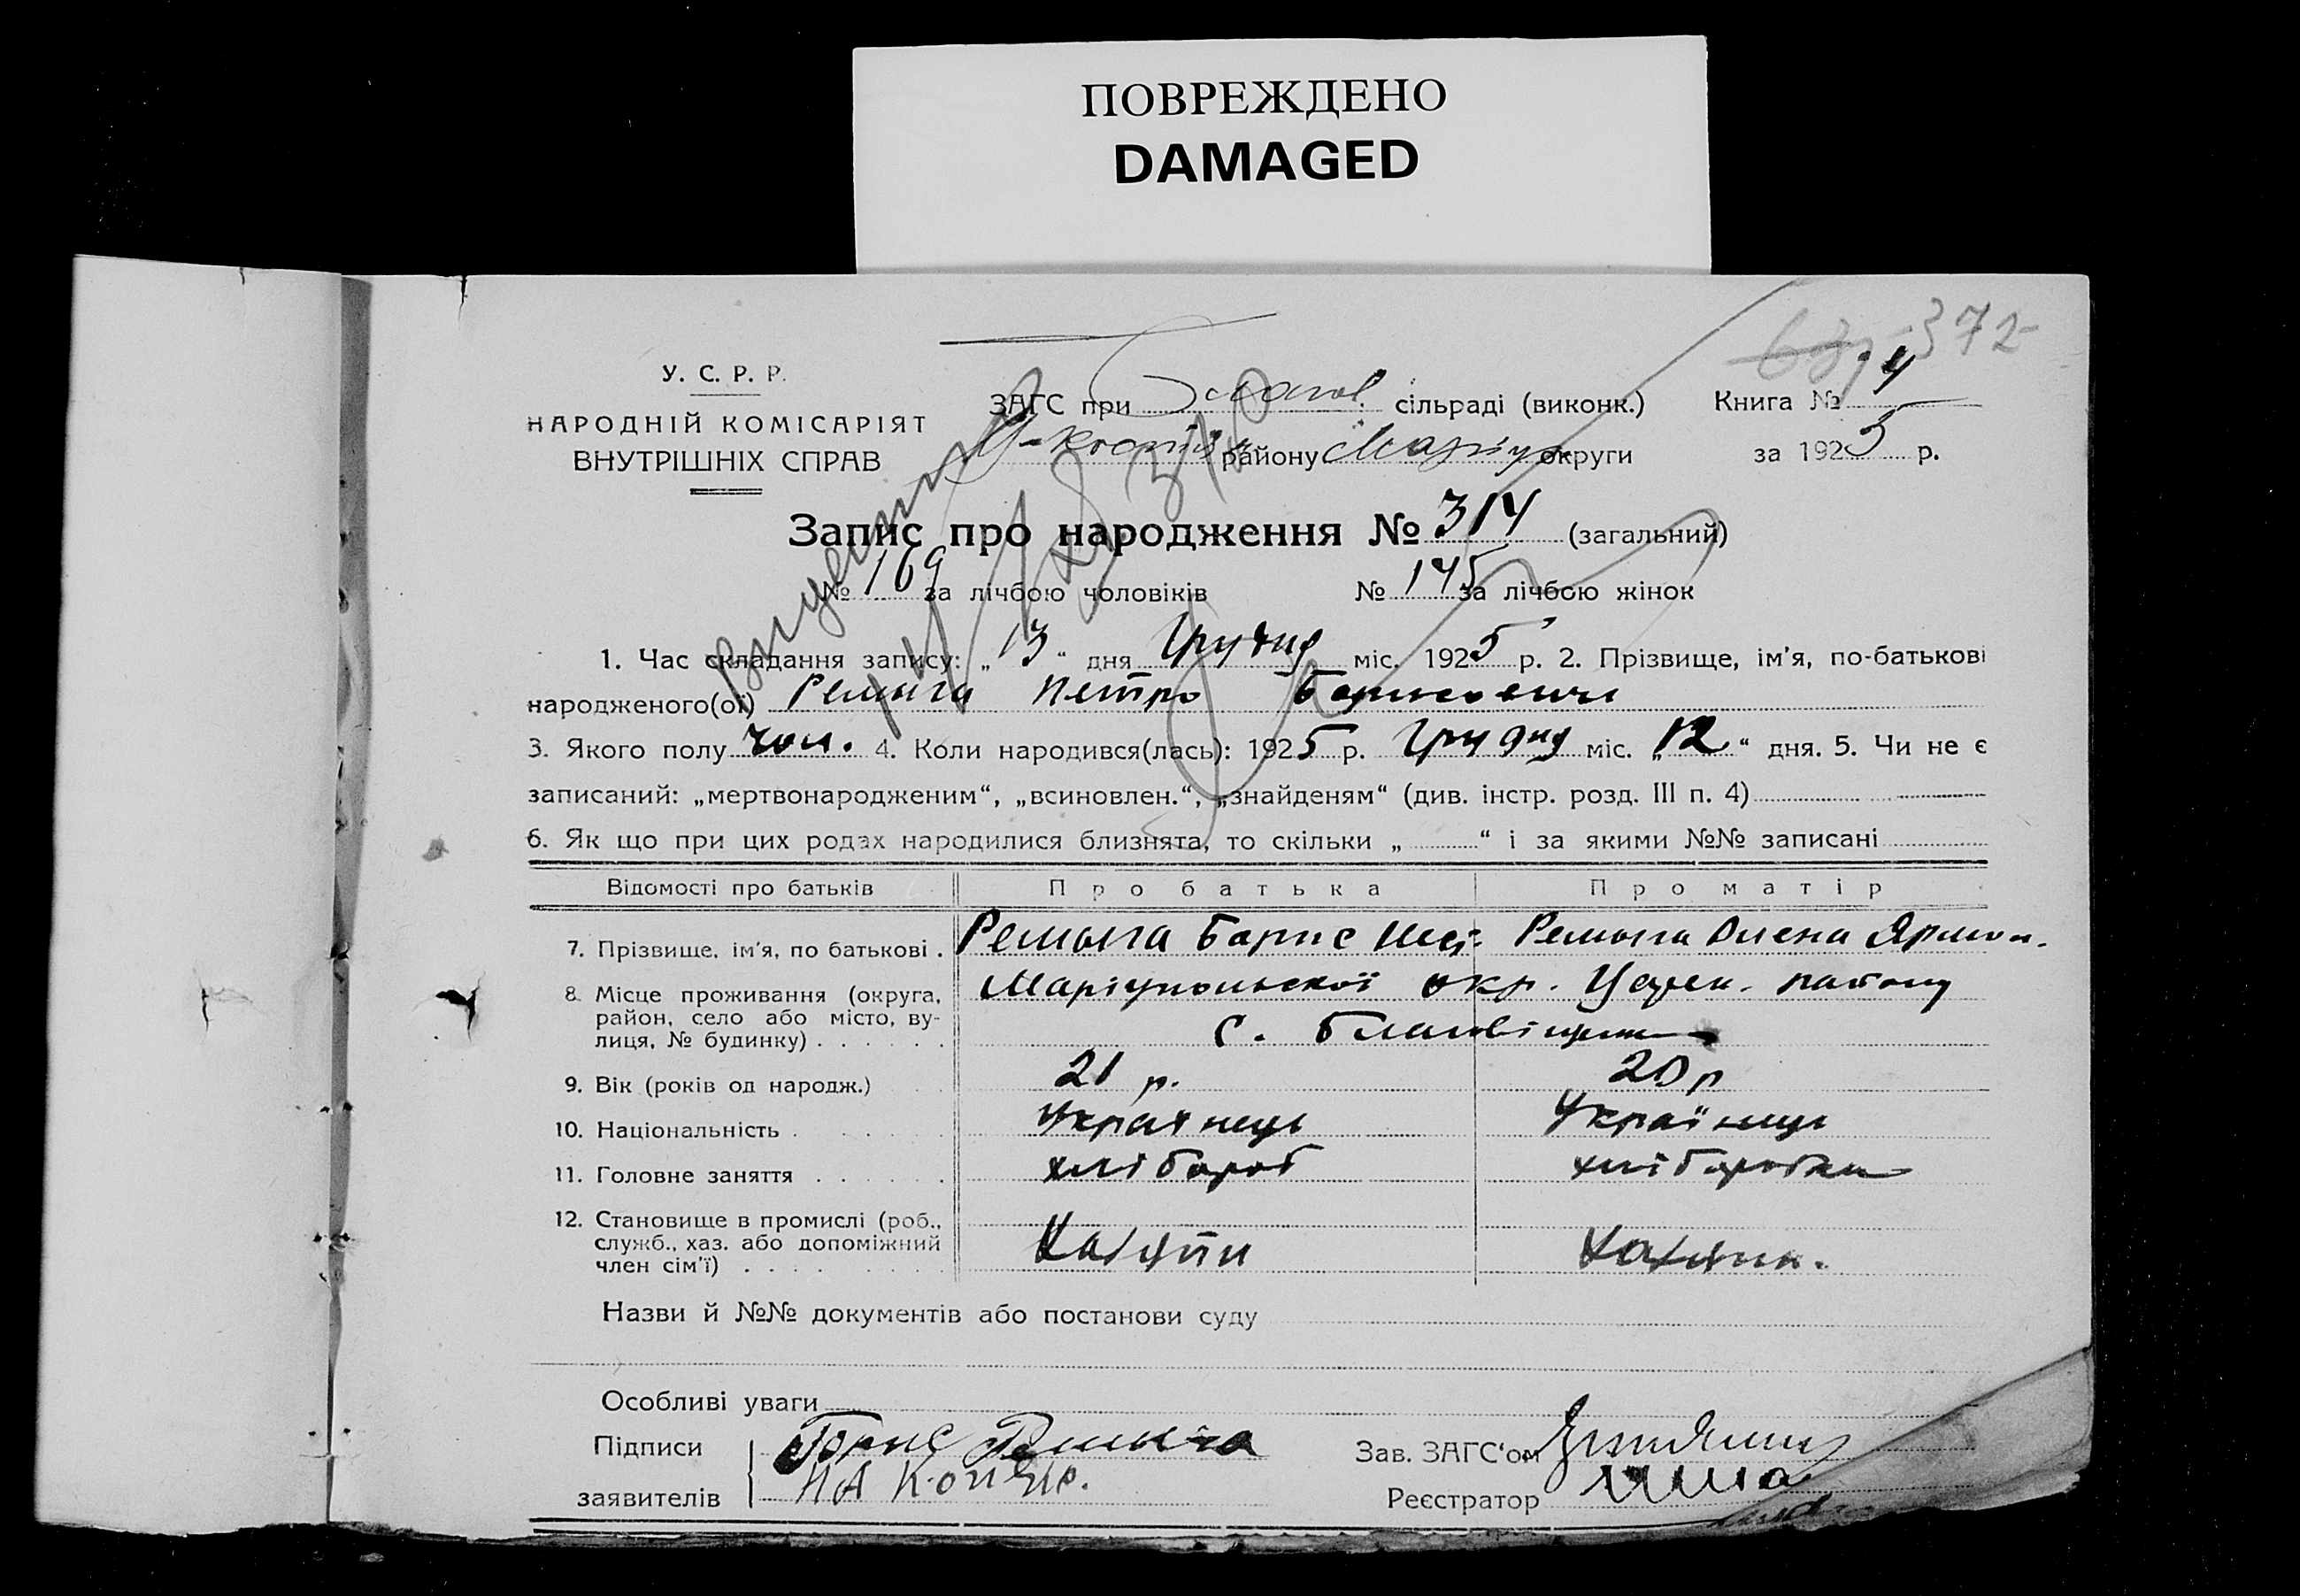 ПОВРЕЖДЕНО
DAMAGED
372
У. С. Р. Р.
НАРОДНІЙ КОМІСАРІЯТ
ВНУТРІШНІХ СПРАВ
ЗАГС при Благов. сільраді (виконк.)
району Маріуп округи
Книга № 4
за 1925 р.
Запис про народження № 314 (загальний)
№ 169 за лічбою чоловіків № 145 за лічбою жінок
1. Час складання запису: „13“ дня Грудня міс. 1925 р. 2. Прізвище, ім'я, по-батькові
народженого(ої) Ремыга Петро Борисович
3. Якого полу чол. 4. Коли народився(лась): 1925 р. Грудня міс. „12“ дня. 5. Чи не є
записаний: „мертвонародженим“, „всиновлен.“, „знайденям“ (див. інстр. розд. III п. 4)
6. Як що при цих родах народилися близнята, то скільки „ “ і за якими №№ записані
Відомості про батьків Про батька Про матір
7. Прізвище, ім'я, по батькові . Ремыга Борис Ремыга Олена Ярмол.
8. Місце проживання (округа, район, село або місто, вулиця, № будинку) Маріупольскої окр. району
с. Благовіщенка
9. Вік (років од народж.) 21 р. 20 р
10. Національність Українець Українець
11. Головне заняття хлібороб хлібороbка
12. Становище в промислі (роб., служб., хаз. або допоміжний член сім'ї)
Назви й №№ документів або постанови суду
Особливі уваги
Підписи Борис Ремыга
заявителів
Зав. ЗАГС'ом
Реєстратор